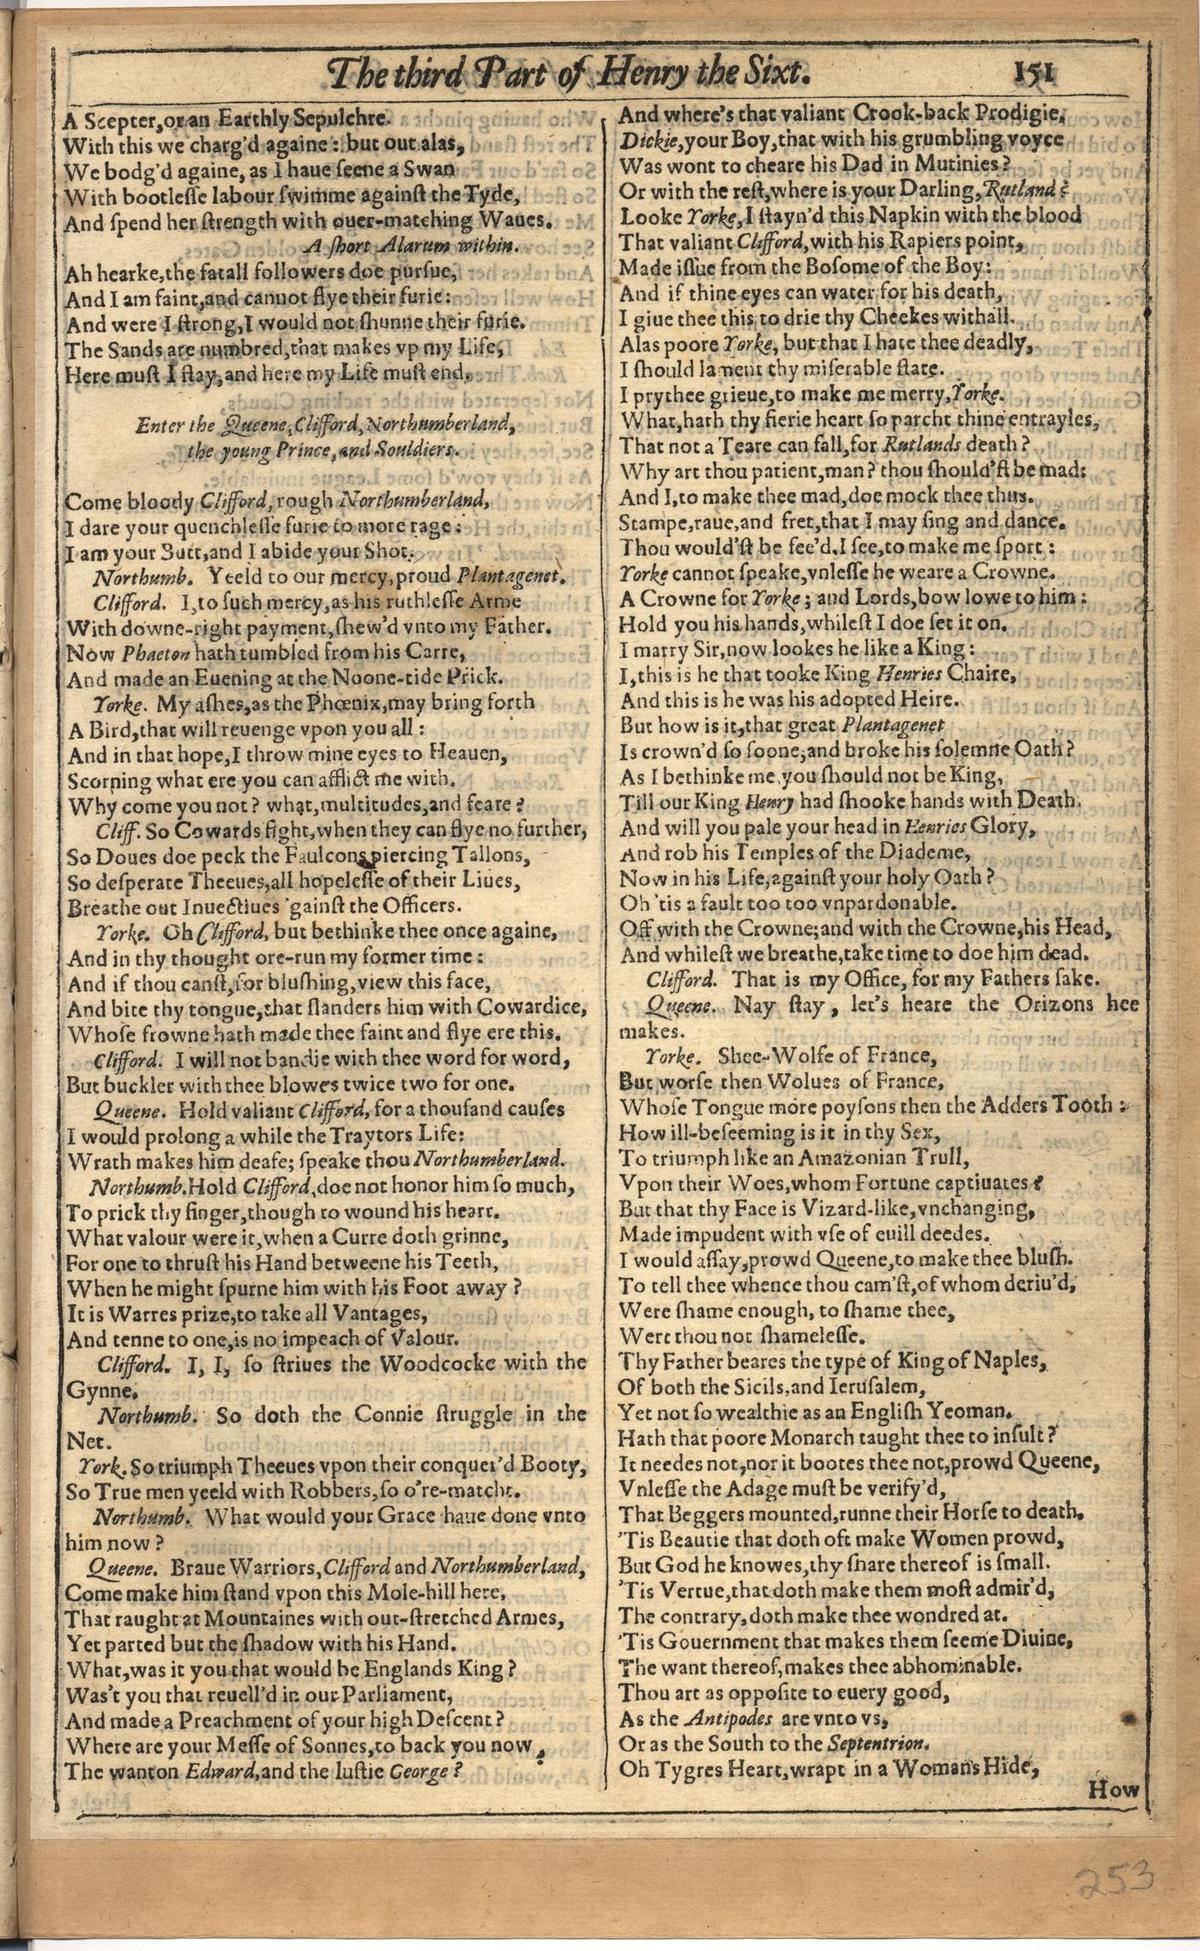 The third Part of Henry the Sixt.
151
A Scepter, or an Earthly Sepulchre.
With this we charg'd againe: but out alas,
We bodg'd againe, as I haue seene a Swan
With bootlesse labour swimme against the Tyde,
And spend her strength with ouer-matching Waues.
A short Alarum within.
Ah hearke, the fatall followers doe pursue,
And I am faint, and cannot flye their furie:
And were I strong, I would not shunne their furie.
The Sands are numbred, that makes vp my Life,
Here must I stay, and here my Life must end.
Enter the Queene, Clifford, Northumberland,
the young Prince, and Souldiers.
Come bloody Clifford, rough Northumberland,
I dare your quenchlesse furie to more rage:
I am your Butt, and I abide your Shot.
Northumb. Yeeld to our mercy, proud Plantagenet.
Clifford. I, to such mercy, as his ruthlesse Arme
With downe-right payment, shew'd vnto my Father.
Now Phaeton hath tumbled from his Carre,
And made an Euening at the Noone-tide Prick.
Yorke. My ashes, as the Phœnix, may bring forth
A Bird, that will reuenge vpon you all:
And in that hope, I throw mine eyes to Heauen,
Scorning what ere you can afflict me with.
Why come you not? what, multitudes, and feare?
Cliff. So Cowards fight, when they can flye no further,
So Doues doe peck the Faulcons piercing Tallons,
So desperate Theeues, all hopelesse of their Liues,
Breathe out Inuectiues 'gainst the Officers.
Yorke. Oh Clifford, but bethinke thee once againe,
And in thy thought ore-run my former time:
And if thou canst, for blushing, view this face,
And bite thy tongue, that slanders him with Cowardice,
Whose frowne hath made thee faint and flye ere this.
Clifford. I will not bandie with thee word for word,
But buckler with thee blowes twice two for one.
Queene. Hold valiant Clifford, for a thousand causes
I would prolong a while the Traytors Life:
Wrath makes him deafe; speake thou Northumberland.
Northumb. Hold Clifford, doe not honor him so much,
To prick thy finger, though to wound his heart.
What valour were it, when a Curre doth grinne,
For one to thrust his Hand betweene his Teeth,
When he might spurne him with his Foot away?
It is Warres prize, to take all Vantages,
And tenne to one, is no impeach of Valour.
Clifford. I, I, so striues the Woodcocke with the
Gynne.
Northumb. So doth the Connie struggle in the
Net.
York. So triumph Theeues vpon their conquer'd Booty,
So True men yeeld with Robbers, so o're-matcht.
Northumb. What would your Grace haue done vnto
him now?
Queene. Braue Warriors, Clifford and Northumberland,
Come make him stand vpon this Mole-hill here,
That raught at Mountaines with out-stretched Armes,
Yet parted but the shadow with his Hand.
What, was it you that would be Englands King?
Was't you that reuell'd in our Parliament,
And made a Preachment of your high Descent?
Where are your Messe of Sonnes, to back you now,
The wanton Edward, and the lustie George?
And where's that valiant Crook-back Prodigie,
Dickie, your Boy, that with his grumbling voyce
Was wont to cheare his Dad in Mutinies?
Or with the rest, where is your Darling, Rutland?
Looke Yorke, I stayn'd this Napkin with the blood
That valiant Clifford, with his Rapiers point,
Made issue from the Bosome of the Boy:
And if thine eyes can water for his death,
I giue thee this to drie thy Cheekes withall.
Alas poore Yorke, but that I hate thee deadly,
I should lament thy miserable state.
I prythee grieue, to make me merry, Yorke.
What, hath thy fierie heart so parcht thine entrayles,
That not a Teare can fall, for Rutlands death?
Why art thou patient, man? thou should'st be mad:
And I, to make thee mad, doe mock thee thus.
Stampe, raue, and fret, that I may sing and dance.
Thou would'st be fee'd, I see, to make me sport:
Yorke cannot speake, vnlesse he weare a Crowne.
A Crowne for Yorke; and Lords, bow lowe to him:
Hold you his hands, whilest I doe set it on.
I marry Sir, now lookes he like a King:
I, this is he that tooke King Henries Chaire,
And this is he was his adopted Heire.
But how is it, that great Plantagenet
Is crown'd so soone, and broke his solemne Oath?
As I bethinke me, you should not be King,
Till our King Henry had shooke hands with Death.
And will you pale your head in Henries Glory,
And rob his Temples of the Diademe,
Now in his Life, against your holy Oath?
Oh 'tis a fault too too vnpardonable.
Off with the Crowne; and with the Crowne, his Head,
And whilest we breathe, take time to doe him dead.
Clifford. That is my Office, for my Fathers sake.
Queene. Nay stay, let's heare the Orizons hee
makes.
Yorke. Shee-Wolfe of France,
But worse then Wolues of France,
Whose Tongue more poysons then the Adders Tooth:
How ill-beseeming is it in thy Sex,
To triumph like an Amazonian Trull,
Vpon their Woes, whom Fortune captiuates?
But that thy Face is Vizard-like, vnchanging,
Made impudent with vse of euill deedes.
I would assay, prowd Queene, to make thee blush.
To tell thee whence thou cam'st, of whom deriu'd,
Were shame enough, to shame thee,
Wert thou not shamelesse.
Thy Father beares the type of King of Naples,
Of both the Sicils, and Ierusalem,
Yet not so wealthie as an English Yeoman.
Hath that poore Monarch taught thee to insult?
It needes not, nor it bootes thee not, prowd Queene,
Vnlesse the Adage must be verify'd,
That Beggers mounted, runne their Horse to death.
'Tis Beautie that doth oft make Women prowd,
But God he knowes, thy share thereof is small.
'Tis Vertue, that doth make them most admir'd,
The contrary, doth make thee wondred at.
'Tis Gouernment that makes them seeme Diuine,
The want thereof, makes thee abhominable.
Thou art as opposite to euery good,
As the Antipodes are vnto vs,
Or as the South to the Septentrion.
Oh Tygres Heart, wrapt in a Womans Hide,
How
253